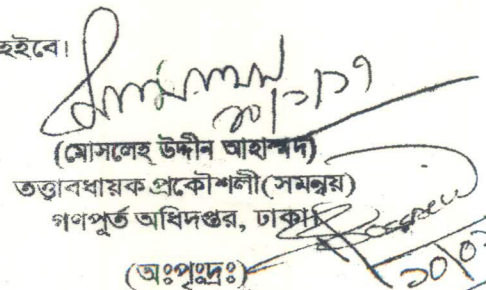 হইবে।
২০/১/১৭
(মোসলেহ্ উদ্দীন আহাম্মদ)
তত্ত্বাবধায়ক প্রকৌশলী(সমন্বয়)
গণপূর্ত অধিদপ্তর, ঢাকা।
(অঃপৃঃদ্রঃ)